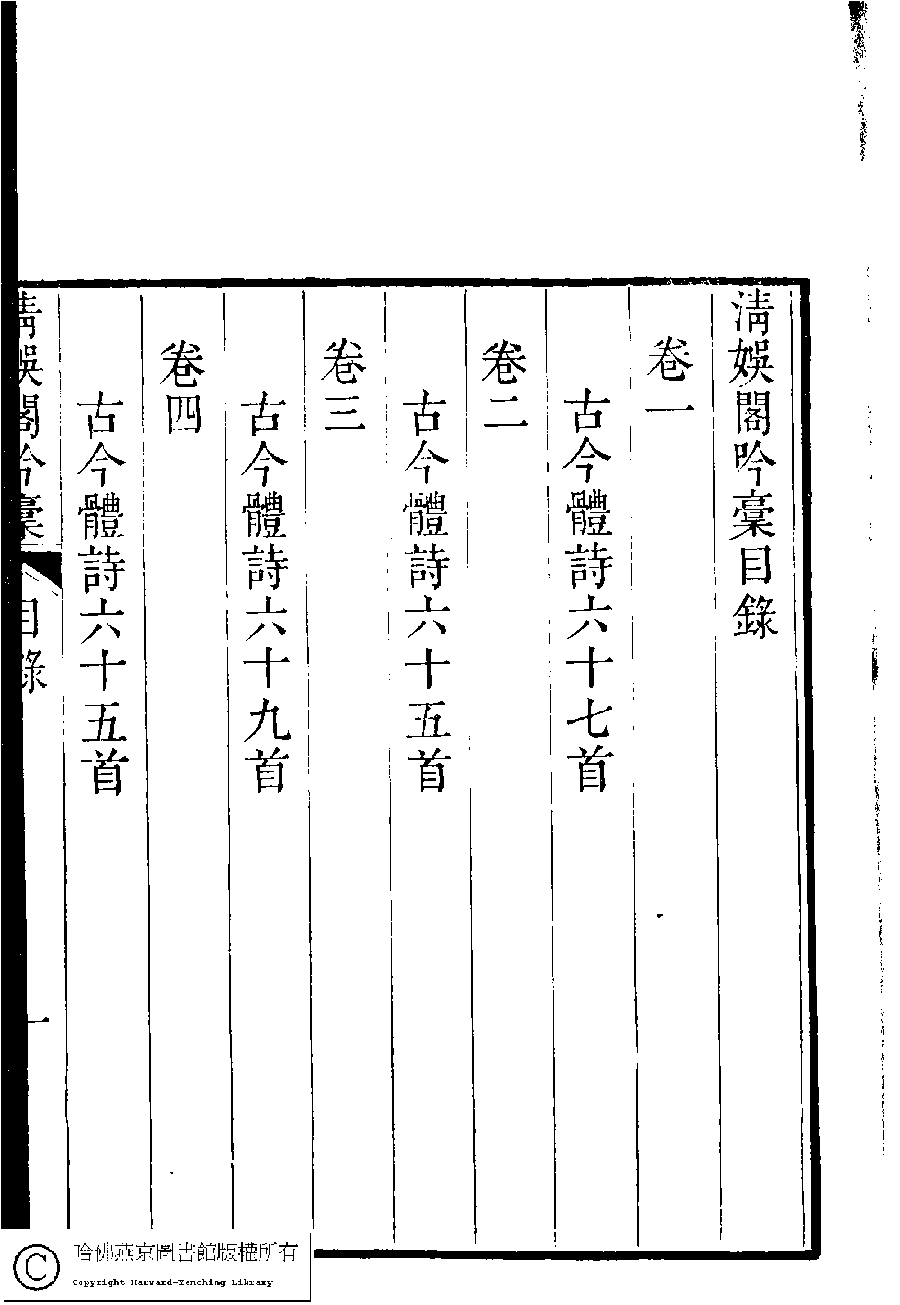 清娛閣吟稾目錄
卷一
古今體詩六十七首
卷二
古今體詩六十五首
卷三
古今體詩六十九首
卷四
古今體詩六十五首
清娛閣吟稾
目錄
一
哈佛燕京圖書館版權所有
Copyright Harvard-Yenching Library